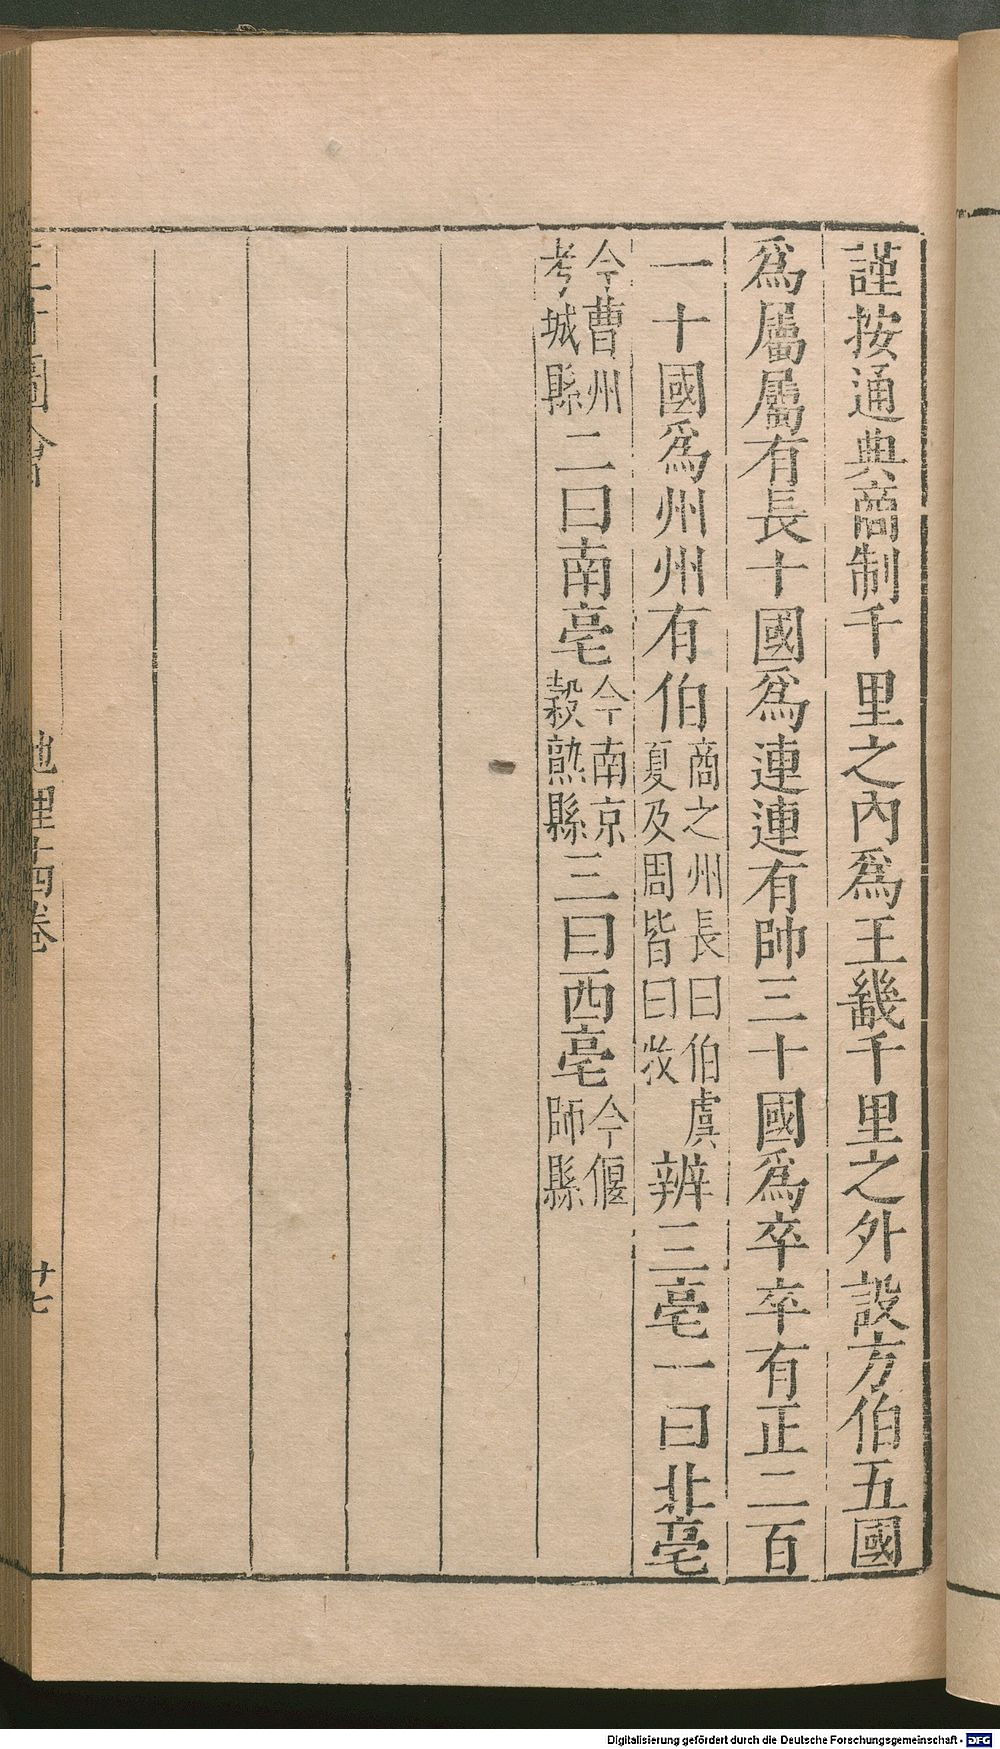 謹按通典商制千里之內爲王畿千里之外設方伯五國
爲屬屬有長十國爲連連有帥三十國爲卒卒有正二百
一十國爲州州有伯商之州長曰伯虞夏及周皆曰牧辨三亳一曰北亳
今曹州考城縣二曰南亳今南京穀熟縣三曰西亳今偃師縣
三才圖會
地理十四卷
廿七
Digitalisierung gefördert durch die Deutsche Forschungsgemeinschaft - DFG